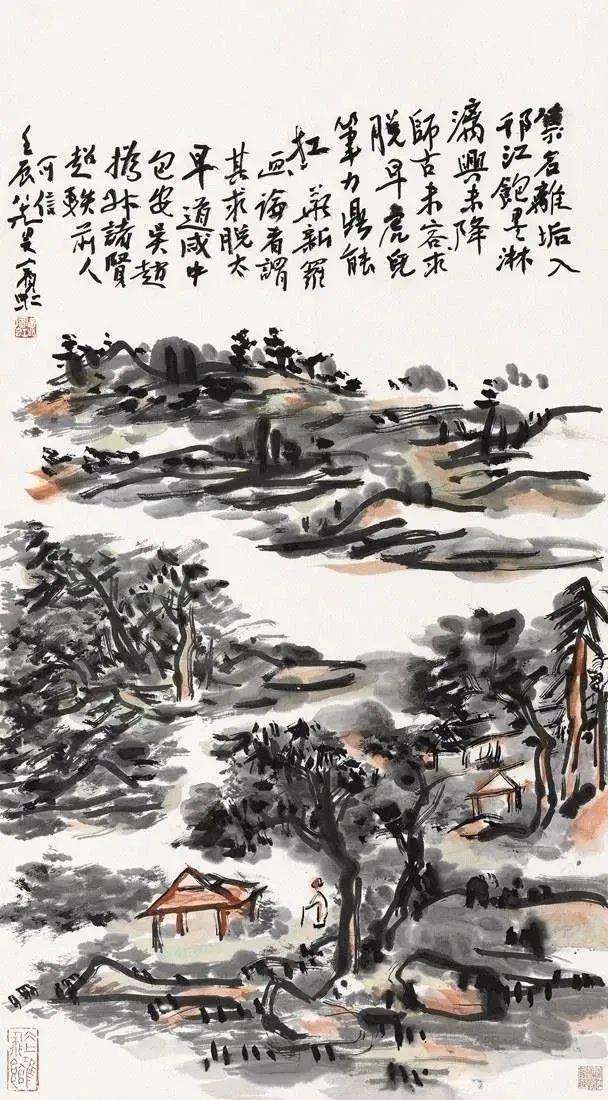 集名離垢入
邗江飽墨淋
漓興未降
師古未容求
脱早虎兒
筆力鼎能
扛 華新羅
画論者謂
其求脱太
早道咸中
包安吳趙
撝叔諸賢
超軼前人
可信
壬辰 叟賓虹